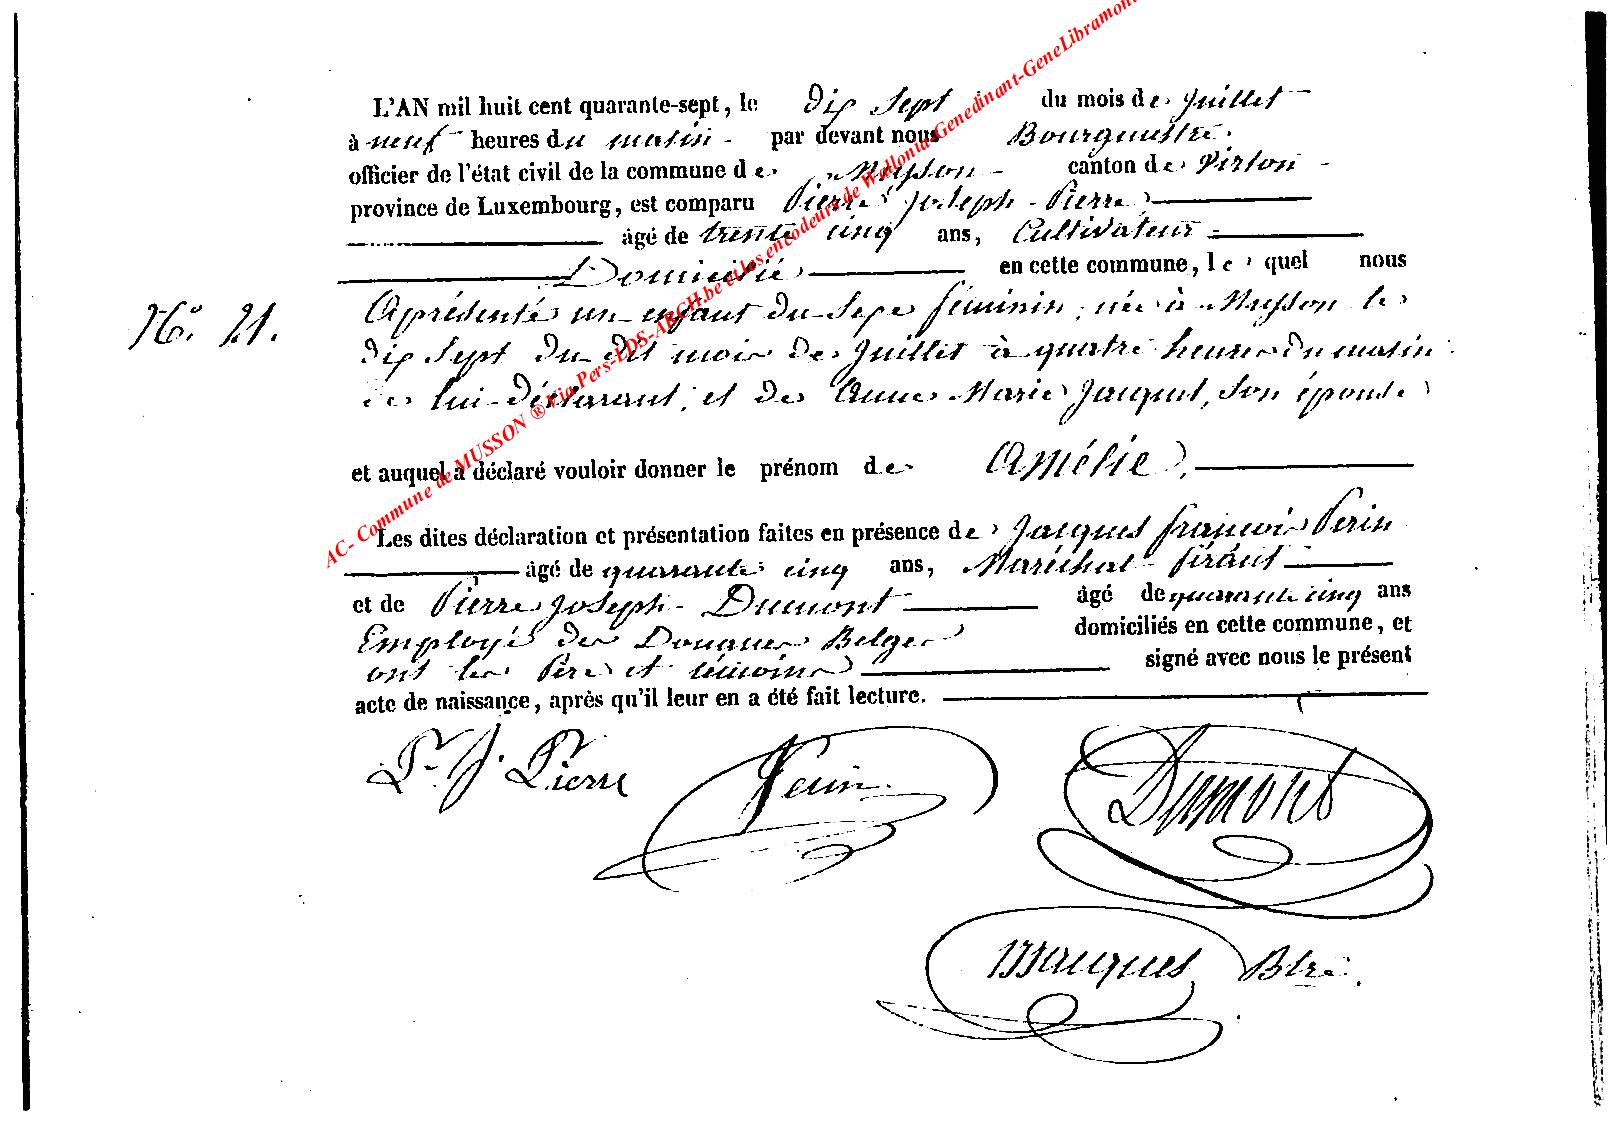 L'AN mil huit cent quarante-sept, le dix Sept du mois de Juillet
à neuf heures du matin - par devant nous Bourguestre.
officier de l'état civil de la commune de Musson - canton de Virton -
province de Luxembourg, est comparu Pierre Joseph - Pierre
âgé de trente cinq ans, Cultivateur
Domicilié en cette commune, le quel nous
N.o 21.
A présenté un enfant du Sexe féminin, née à Musson le
dix Sept du dit mois de Juillet à quatre heures du matin
de lui déclarant, et de Anne Marie Jacquet, Son épouse
et auquel a déclaré vouloir donner le prénom de Amélie.
Les dites déclaration et présentation faites en présence de Jacques françois Perin
âgé de quarante cinq ans, Maréchal-férant
et de Pierre Joseph - Dumont âgé de quarante cinq ans
Employé des Douanes Belges domiciliés en cette commune, et
ont les Père et témoins signé avec nous le présent
acte de naissance, après qu'il leur en a été fait lecture.
Pr. J. Pierre Perin Dumont
Btre.
AC- Commune de MUSSON ® Via Pers-LDS-ARCH.be et les encodeurs de Wallonia-Genedinant-GeneLibramont